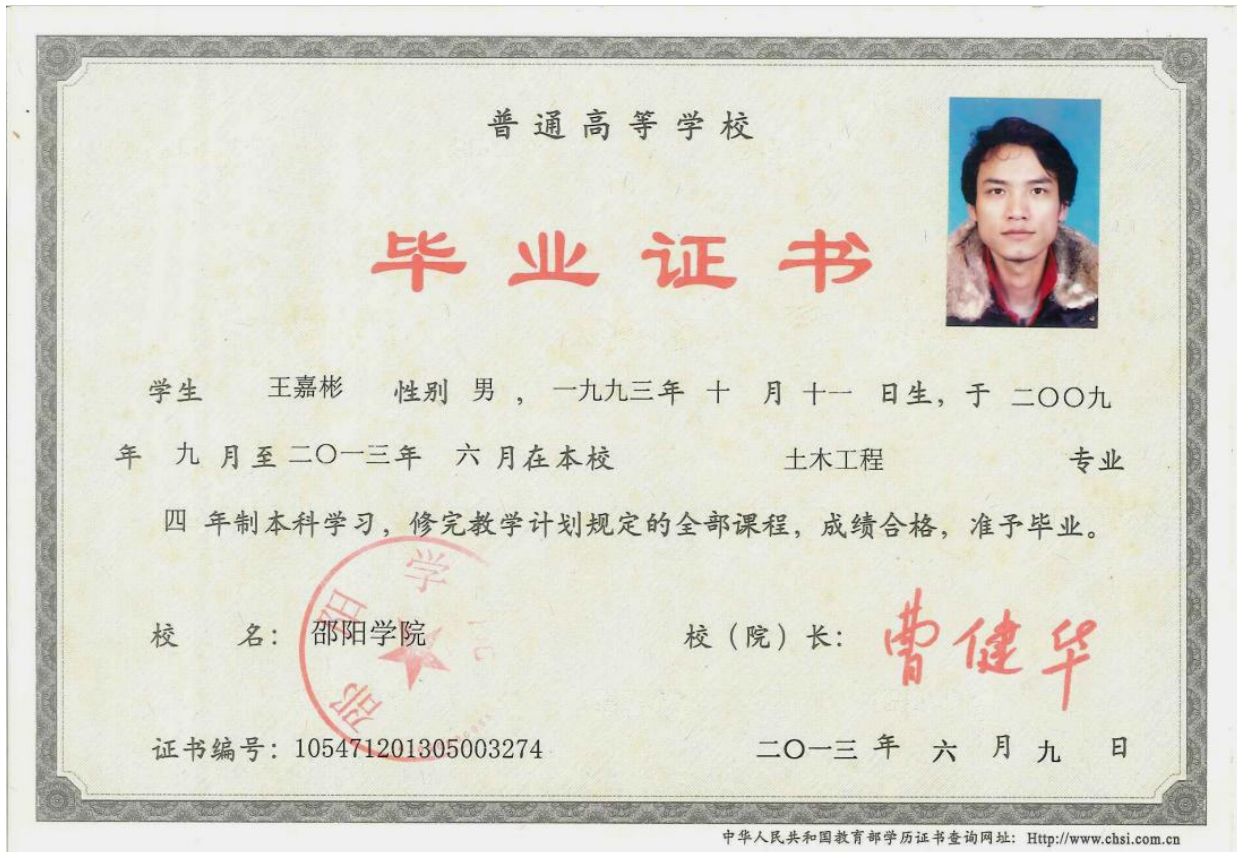 普通高等学校
毕业证书
学生 王嘉彬 性别 男 ，一九九三年 十 月 十一 日生，于 二〇〇九
年 九 月至二〇一三年 六 月在本校 土木工程 专业
四 年制本科学习，修完教学计划规定的全部课程，成绩合格，准予毕业。
邵阳学院
校 名：邵阳学院 校（院）长：曹健华
证书编号：105471201305003274 二〇一三 年 六 月 九 日
中华人民共和国教育部学历证书查询网址：Http://www.chsi.com.cn